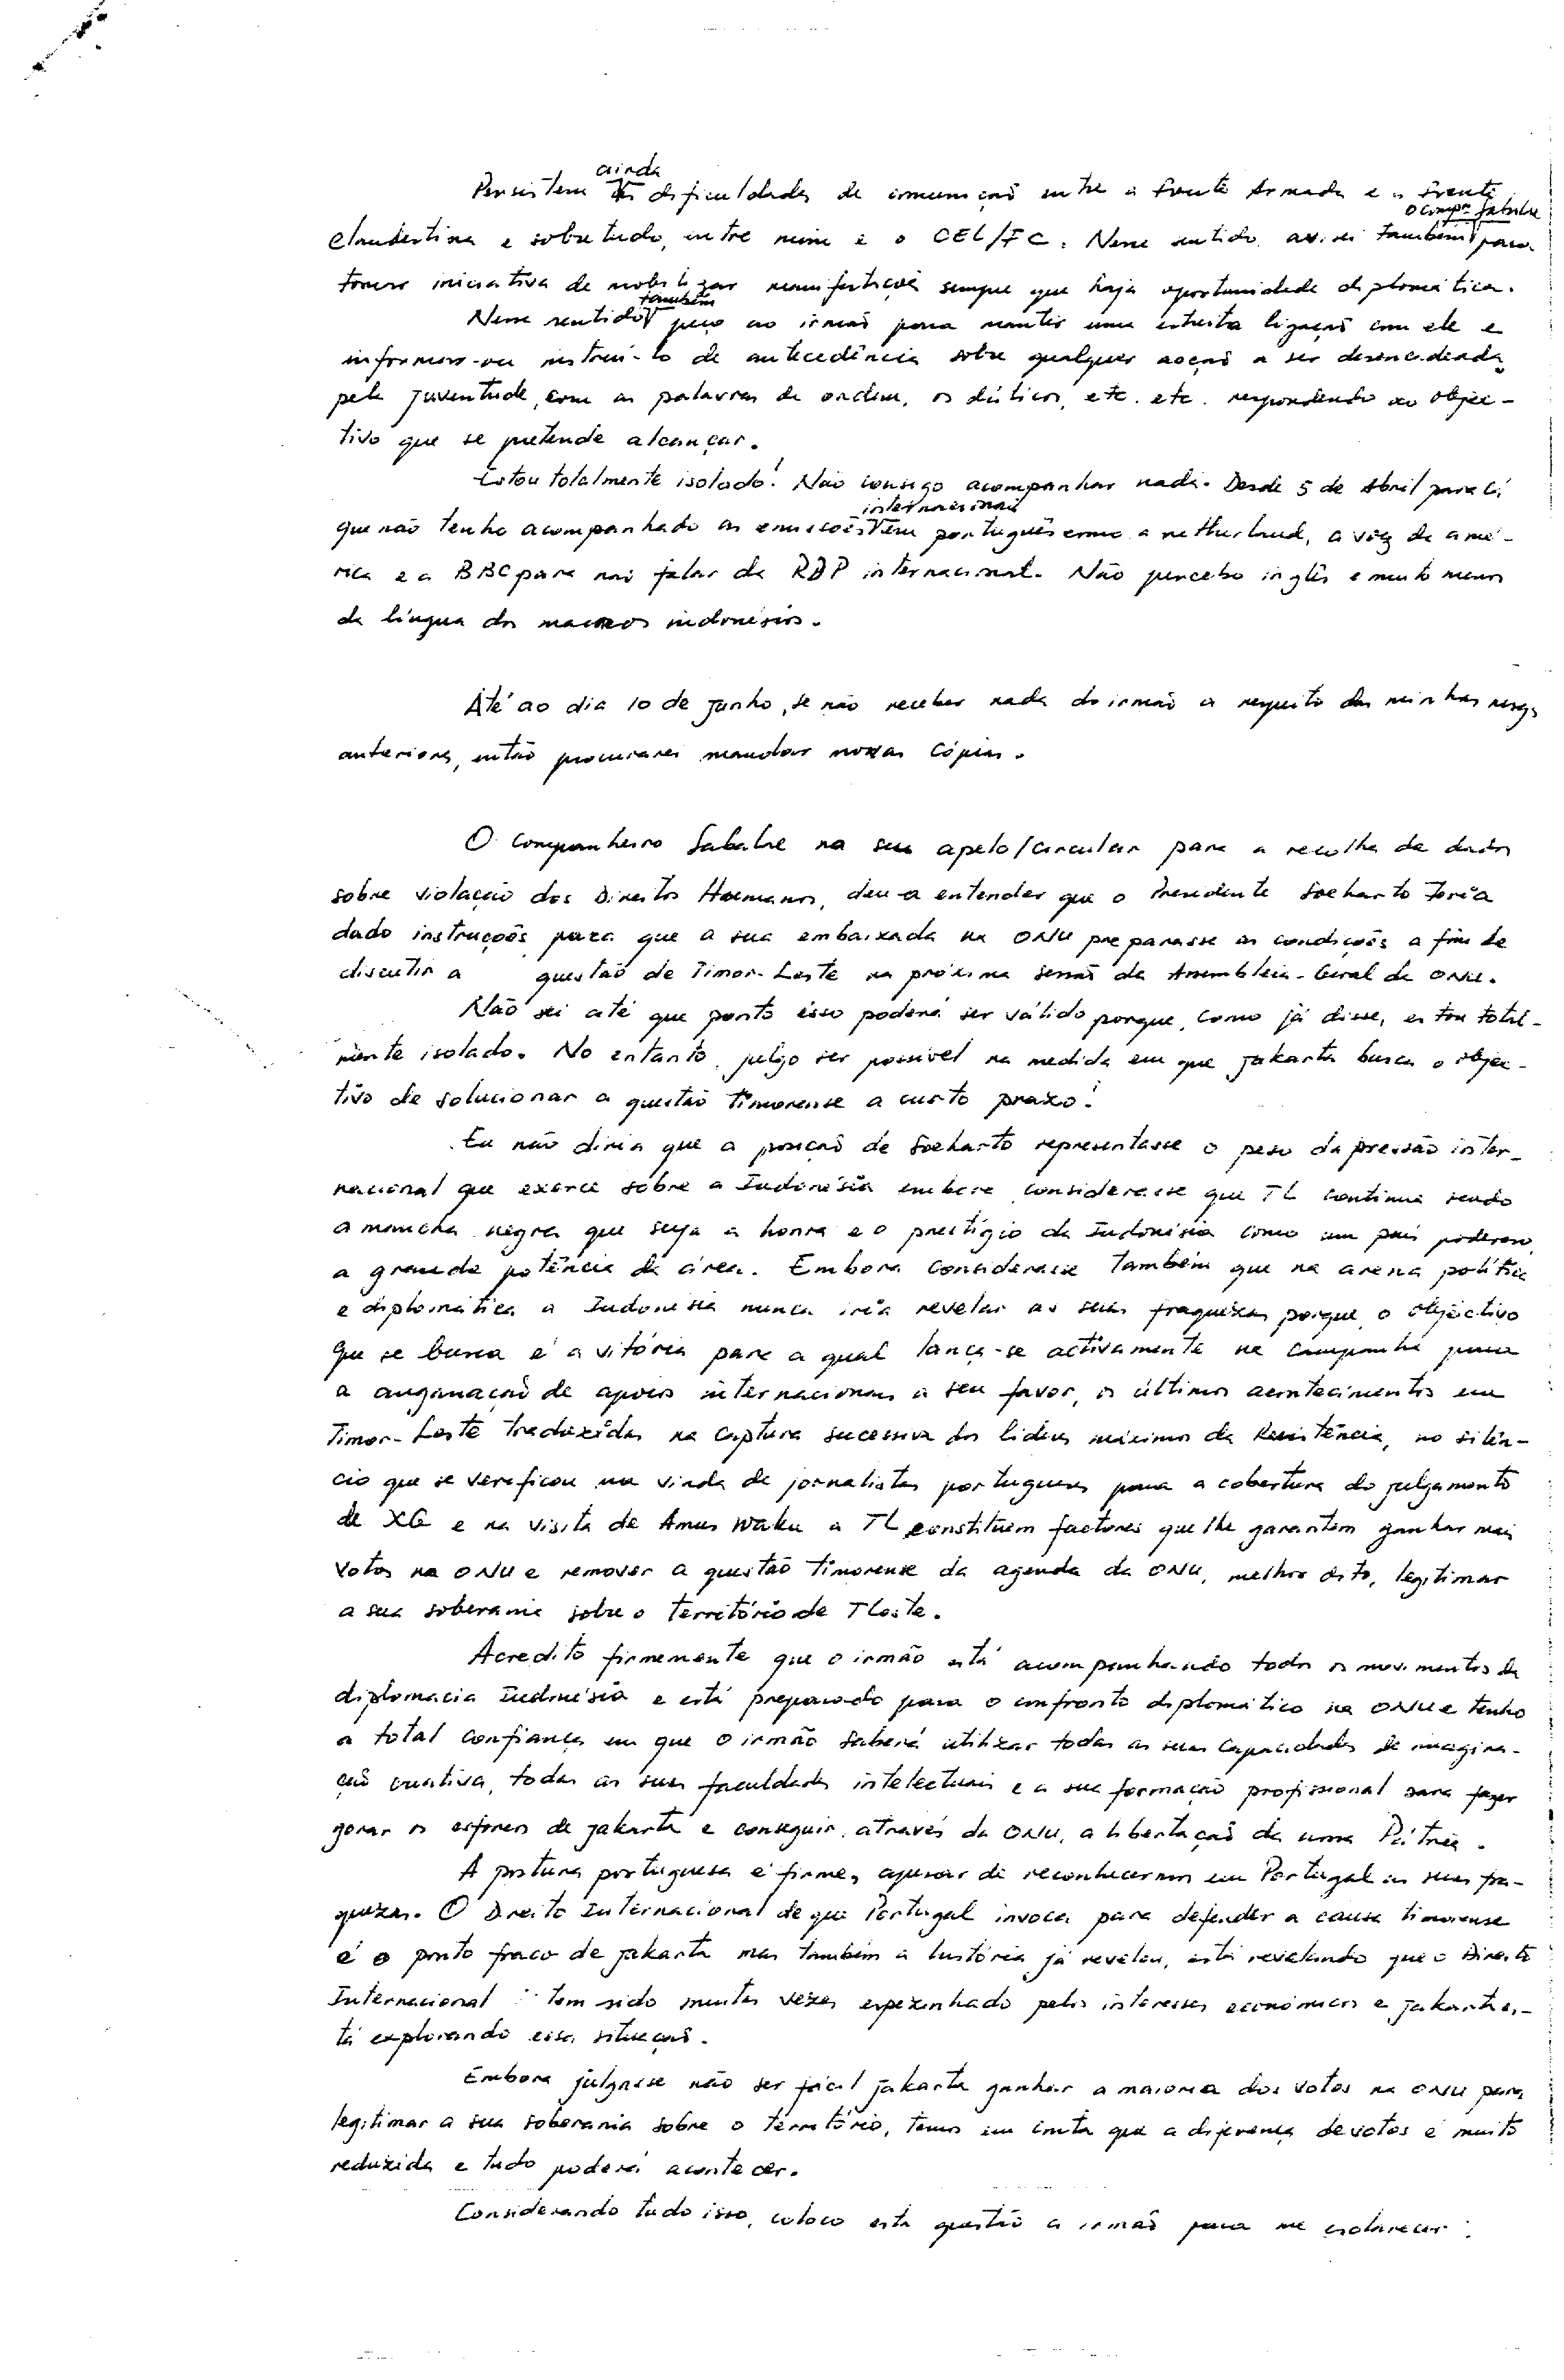 Persistem ainda as dificuldades de comunicação entre a frente Armada e a frente
Clandestina e sobretudo, entre mim e o CEL/FC. Nesse sentido, avisei também o compº Sabalae para
tomar iniciativa de mobilizar manifestações sempre que haja oportunidade diplomática.
Nesse sentido também peço ao irmão para manter uma estreita ligação com ele e
informar-ou instruí-lo de antecedência sobre qualquer acção a ser desencadeada
pela juventude, com as palavras de ordem, os dísticos, etc. etc. respondendo ao objec-
tivo que se pretende alcançar.
Estou totalmente isolado! Não consigo acompanhar nada. Desde 5 de Abril para cá
que não tenho acompanhado as emissões internacionais em português como a netherland, a voz da amé-
rica e a BBC para não falar da RDP internacional. Não percebo inglês e muito menos
da língua dos indonésios.
Até ao dia 10 de Junho, se não receber nada do irmão a respeito das minhas
anteriores, então procurarei mandar novas cópias.
O Companheiro Sabalae na sua apelo/circular para a recolha de dados
sobre violação dos Direitos Humanos, deu-a entender que o Presidente Soeharto teria
dado instruções para que a sua embaixada na ONU preparasse as condições a fim de
discutir a questão de Timor-Leste na próxima sessão da Assembleia-Geral da ONU.
Não sei até que ponto isso poderá ser válido porque, como já disse, estou total-
mente isolado. No entanto, julgo ser possível na medida em que Jakarta busca o objec-
tivo de solucionar a questão timorense a curto prazo!
Eu não diria que a posição de Soeharto representasse o peso da pressão inter-
nacional que exerce sobre a Indonésia embora considerasse que TL continua sendo
a mancha negra que suja a honra e o prestígio da Indonésia como um país poderoso,
a grande potência da área. Embora considerasse também que na arena política
e diplomática a Indonésia nunca iria revelar as suas fraquezas porque o objectivo
que se busca é a vitória para a qual lança-se activamente na campanha para
a anganação de apoios internacionais a seu favor, os últimos acontecimentos em
Timor-Leste traduzidos na captura sucessiva dos líderes máximos da Resistência, no silên-
cio que se verificou na vinda de jornalistas portugueses para a cobertura do julgamento
de XG e na visita de Amus Wako a TL constituem factores que lhe garantem ganhar mais
votos na ONU e remover a questão timorense da agenda da ONU, melhor dito, legitimar
a sua soberania sobre o território de TLeste.
Acredito firmemente que o irmão está acompanhando todos os movimentos da
diplomacia Indonésia e está preparado para o confronto diplomático na ONU e tenho
a total confiança em que o irmão saberá utilizar todas as suas capacidades de imagina-
ção criativa, todas as suas faculdades intelectuais e a sua formação profissional para fazer
gorar os esforços de Jakarta e conseguir, através da ONU, a libertação da nossa Pátria.
A postura portuguesa é firme, apesar de reconhecermos em Portugal as suas fra-
quezas. O Direito Internacional de que Portugal invoca para defender a causa timorense
é o ponto fraco de Jakarta mas também a história já revelou, está revelando que o Direito
Internacional tem sido muitas vezes espezinhado pelos interesses económicos e Jakarta es-
tá explorando essa situação.
Embora julgasse não ser fácil Jakarta ganhar a maioria dos votos na ONU para
legitimar a sua soberania sobre o território, temos em conta que a diferença de votos é muito
reduzida e tudo poderá acontecer.
Considerando tudo isso, coloco esta questão a irmão para me esclarecer: